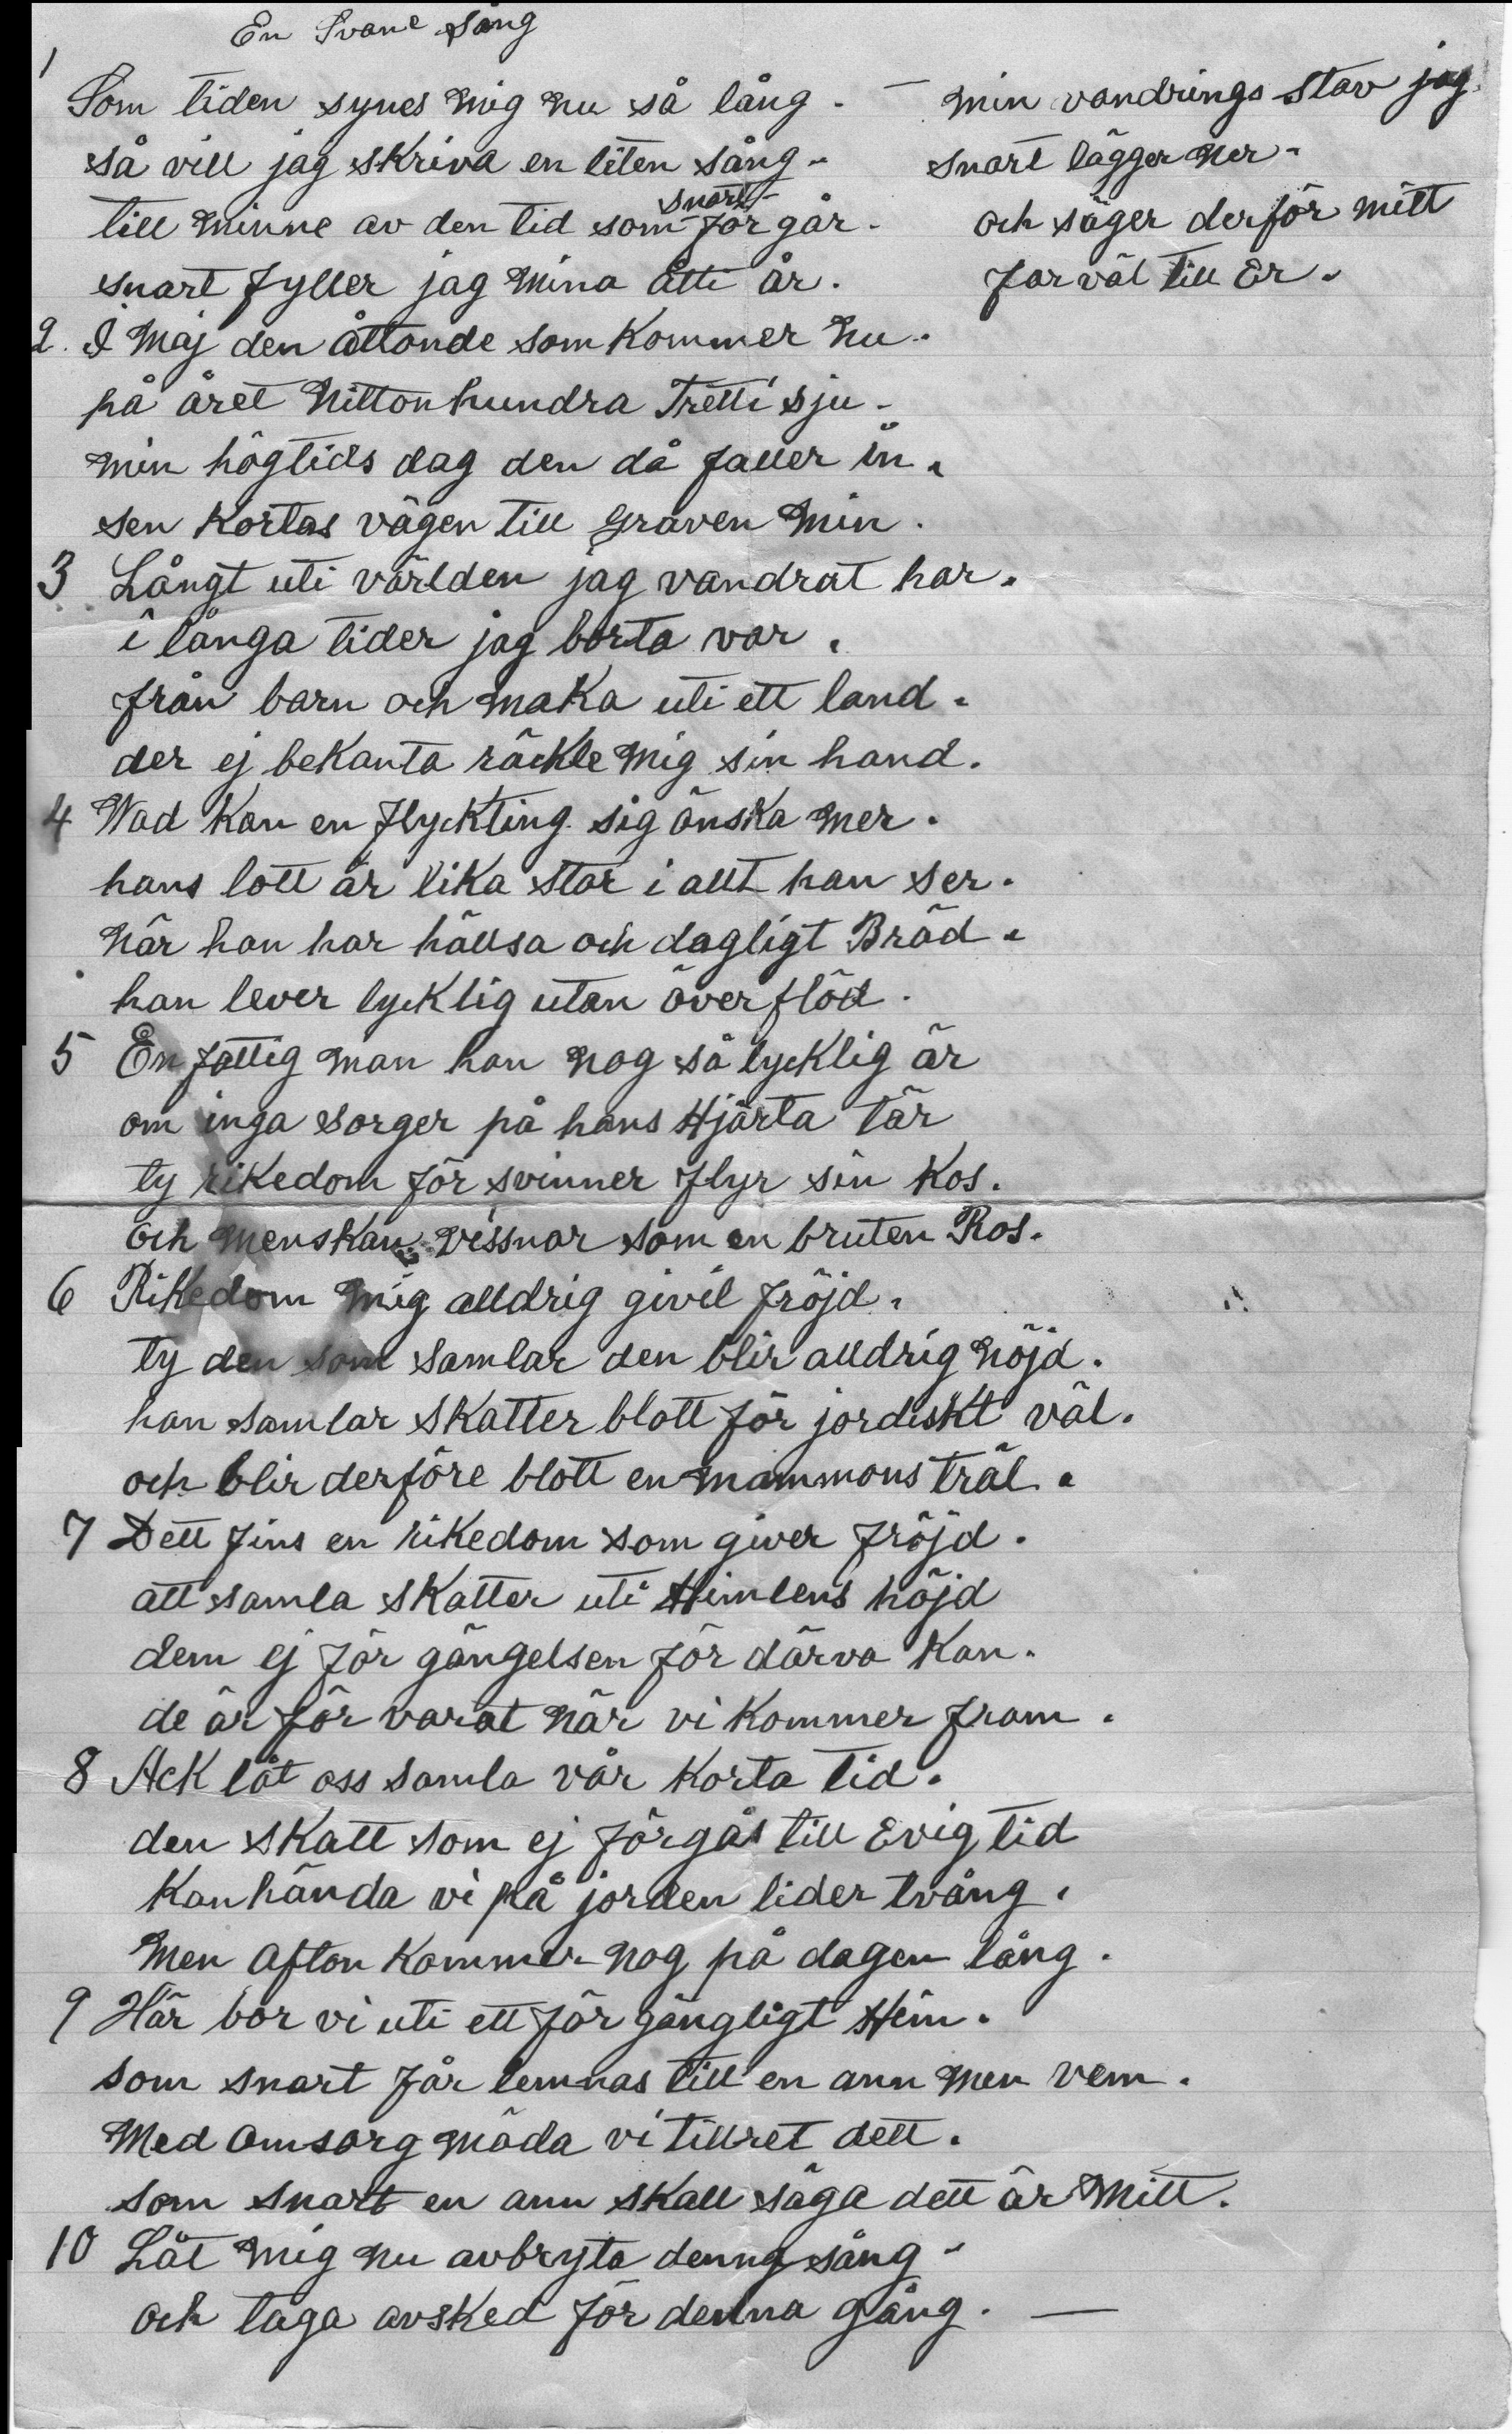 En Svane sång
1
Som tiden synes mig nu så lång -
så vill jag skriva en liten sång -
till minne av den tid som snart för går -
snart fyller jag mina åtti år.
2. I Maj den åttonde som kommer nu.
på året Nittonhundra Tretti sju -
min högtids dag den då faller in.
sen kortas vägen till graven min.
3 Långt uti världen jag vandrat har.
i långa tider jag borta var.
från barn och maka uti ett land.
der ej bekanta räckte mig sin hand.
4 Wad kan en flyckting sig önska mer.
hans lott är lika stor i allt han ser.
när han har hällsa och dagligt Bröd.
han lever lycklig utan överflöd.
5 En fattig man han nog så lycklig är
om inga sorger på hans Hjärta tär
ty rikedom för svinner flyr sin kos.
och menskan vissnar som en bruten Ros.
6 Rikedom mig alldrig givit fröjd.
ty den som samlar den blir alldrig nöjd.
han samlar skatter blott för jordiskt väl.
och blir derföre blott en mammons träl.
7 Dett fins en rikedom som giver fröjd.
att samla skatter uti Himlens höjd
dem ej för gängelsen för därva kan.
de är för varat när vi kommer fram.
8 Ack låt oss samla vår korta tid.
den skatt som ej förgås till Evig tid
kanhända vi på jorden lider tvång.
men afton kommer nog på dagen lång.
9 Här bor vi uti ett för gängligt Hem.
som snart får lemnas till en ann men vem.
Med omsorg möda vi tillret dett.
som snart en ann skall säga dett är mitt.
10 Låt mig nu avbryta denna sång -
och taga avsked för denna gång. —
- min vandrings stav jag
snart lägger ner -
och säger derför mitt
farväl till Er.